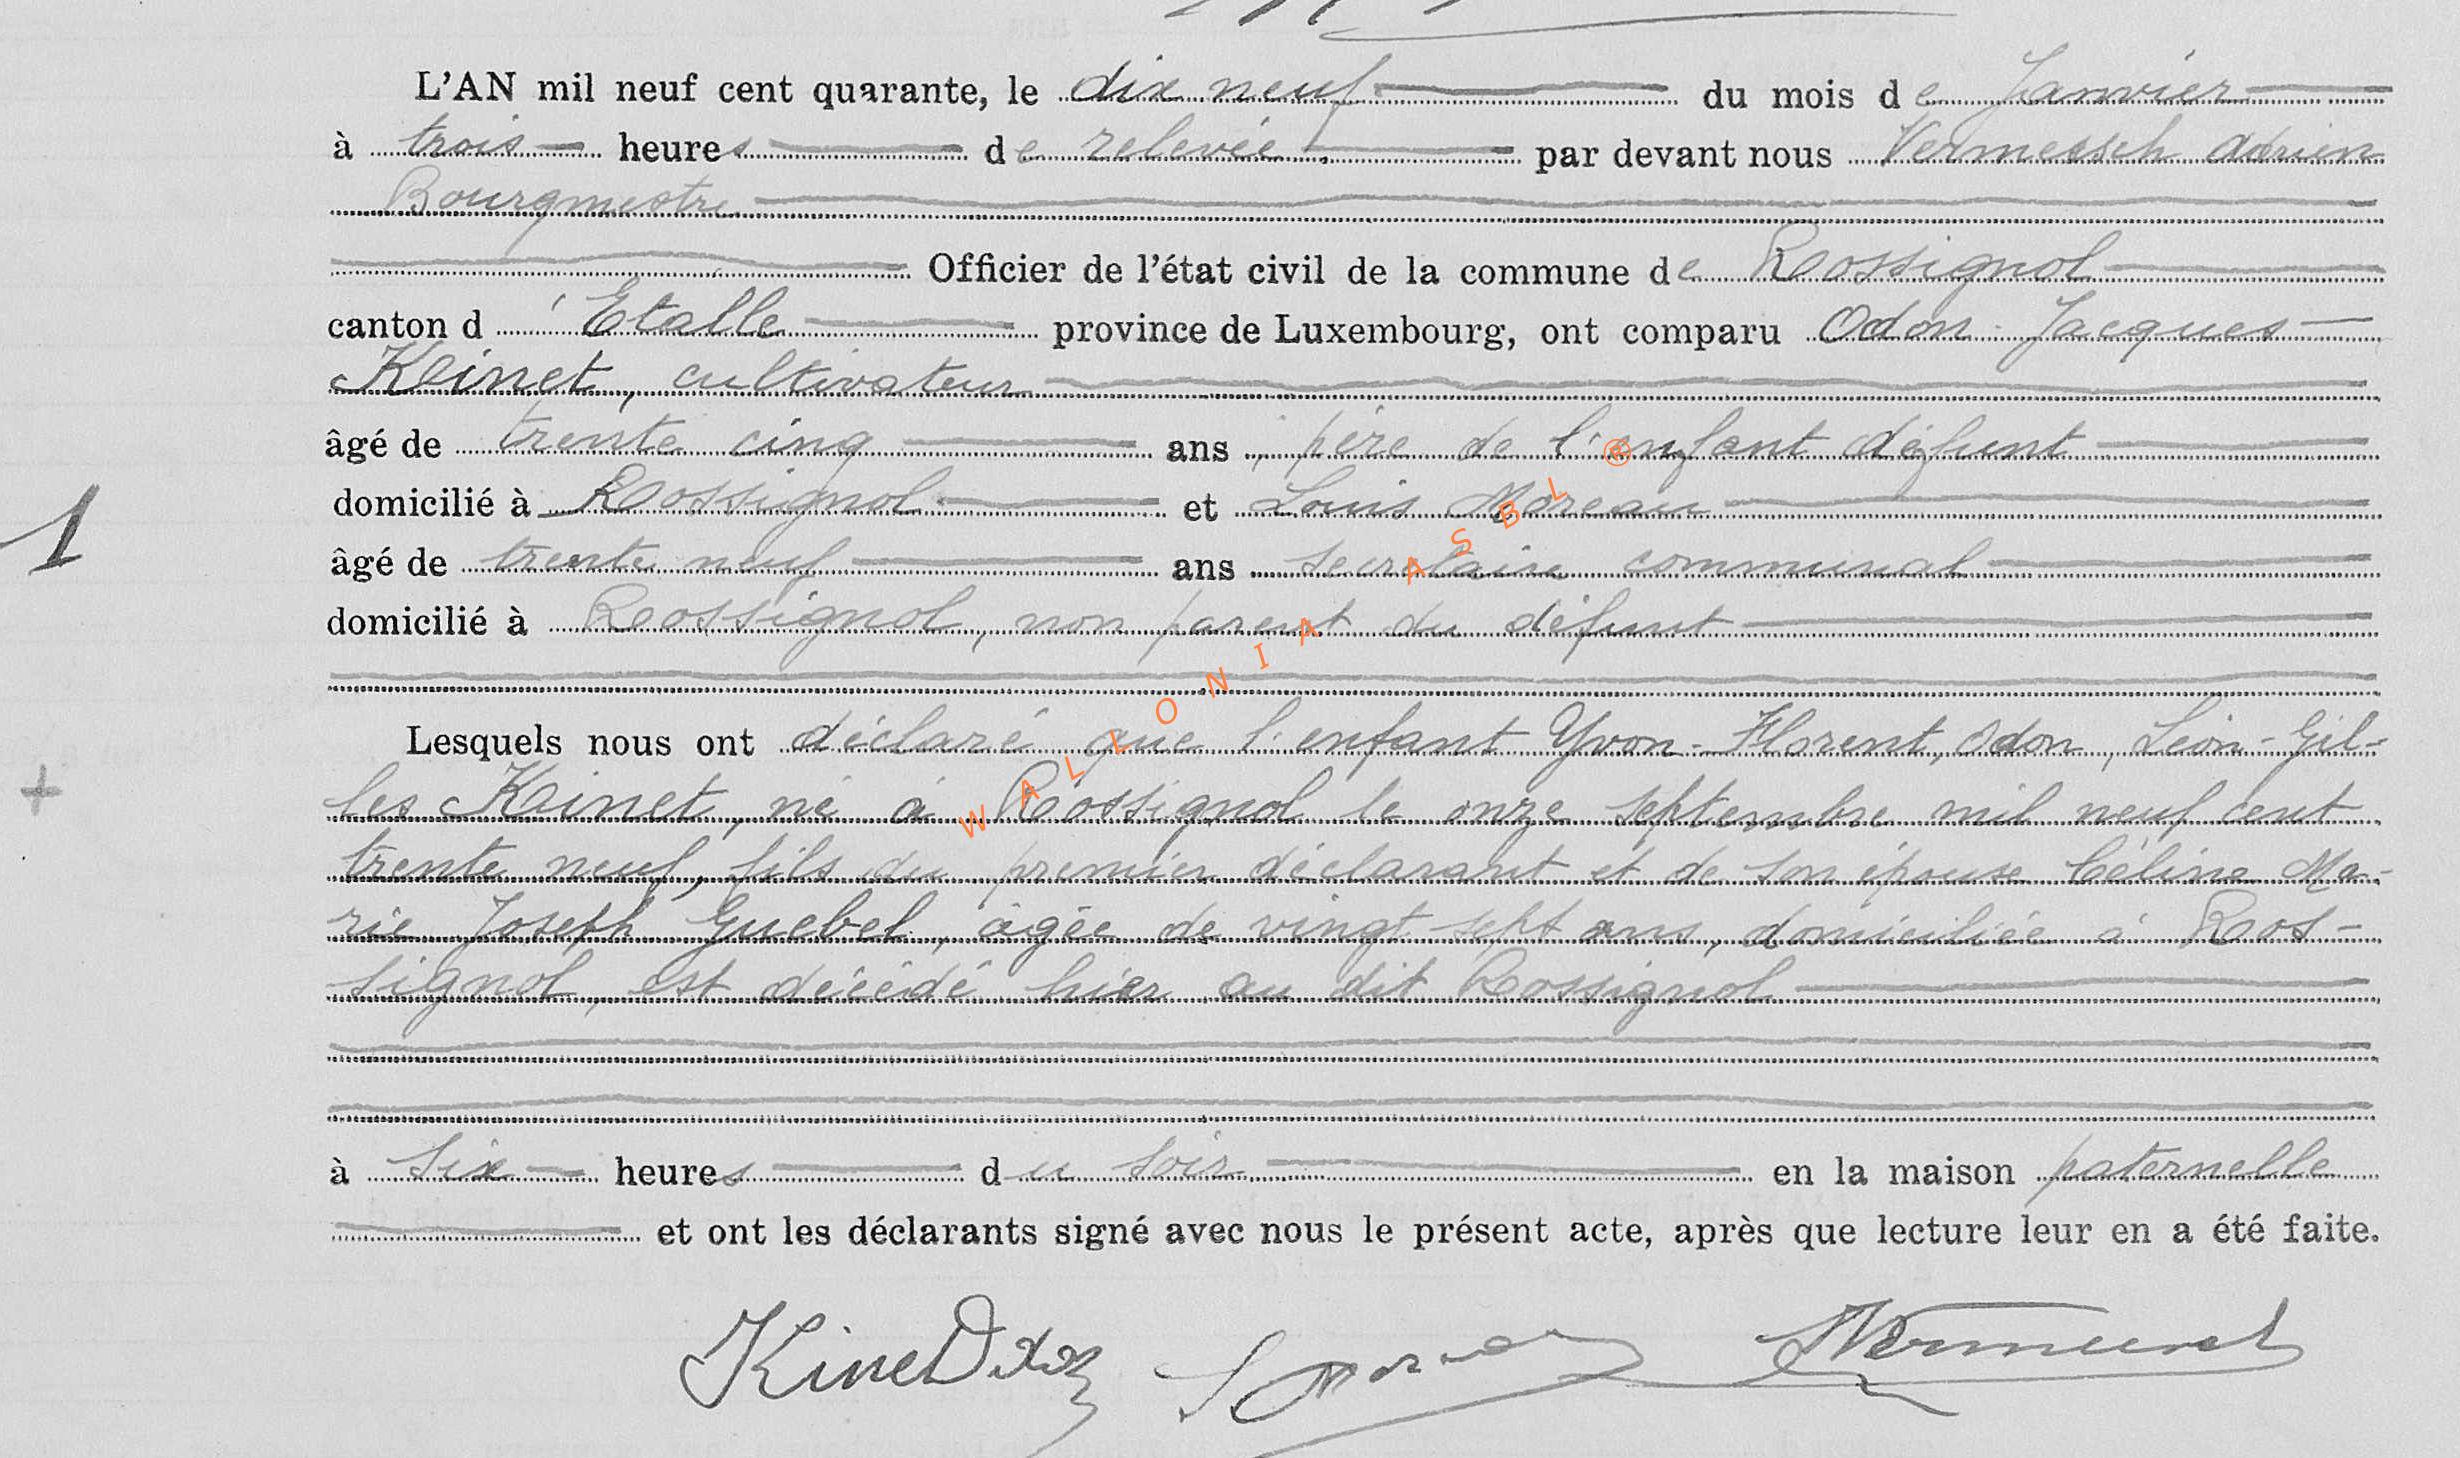 L'AN mil neuf cent quarante, le dix neuf du mois de Janvier
à trois heures de relevée par devant nous Vermessch Adrien
Bourgmestre
Officier de l'état civil de la commune de Rossignol
canton d'Etalle province de Luxembourg, ont comparu Odon Jacques
Kinet, cultivateur
âgé de trente cinq ans, père de l'enfant défunt
domicilié à Rossignol et Louis Moreau
âgé de trente neuf ans secrétaire communal
domicilié à Rossignol, non parent du défunt
1
Lesquels nous ont déclaré que l'enfant Yvon-Florent, Odon, Léon-Gil-
les Kinet, né à Rossignol le onze septembre mil neuf cent
trente neuf, fils du premier déclarant et de son épouse Céline Ma-
rie Joseph Guebel, âgée de vingt-sept ans, domiciliée à Ros-
signol, est décédé hier au dit Rossignol
à six heures du soir en la maison paternelle
et ont les déclarants signé avec nous le présent acte, après que lecture leur en a été faite.
Kinet Odon
WALLONIA ASBL ®